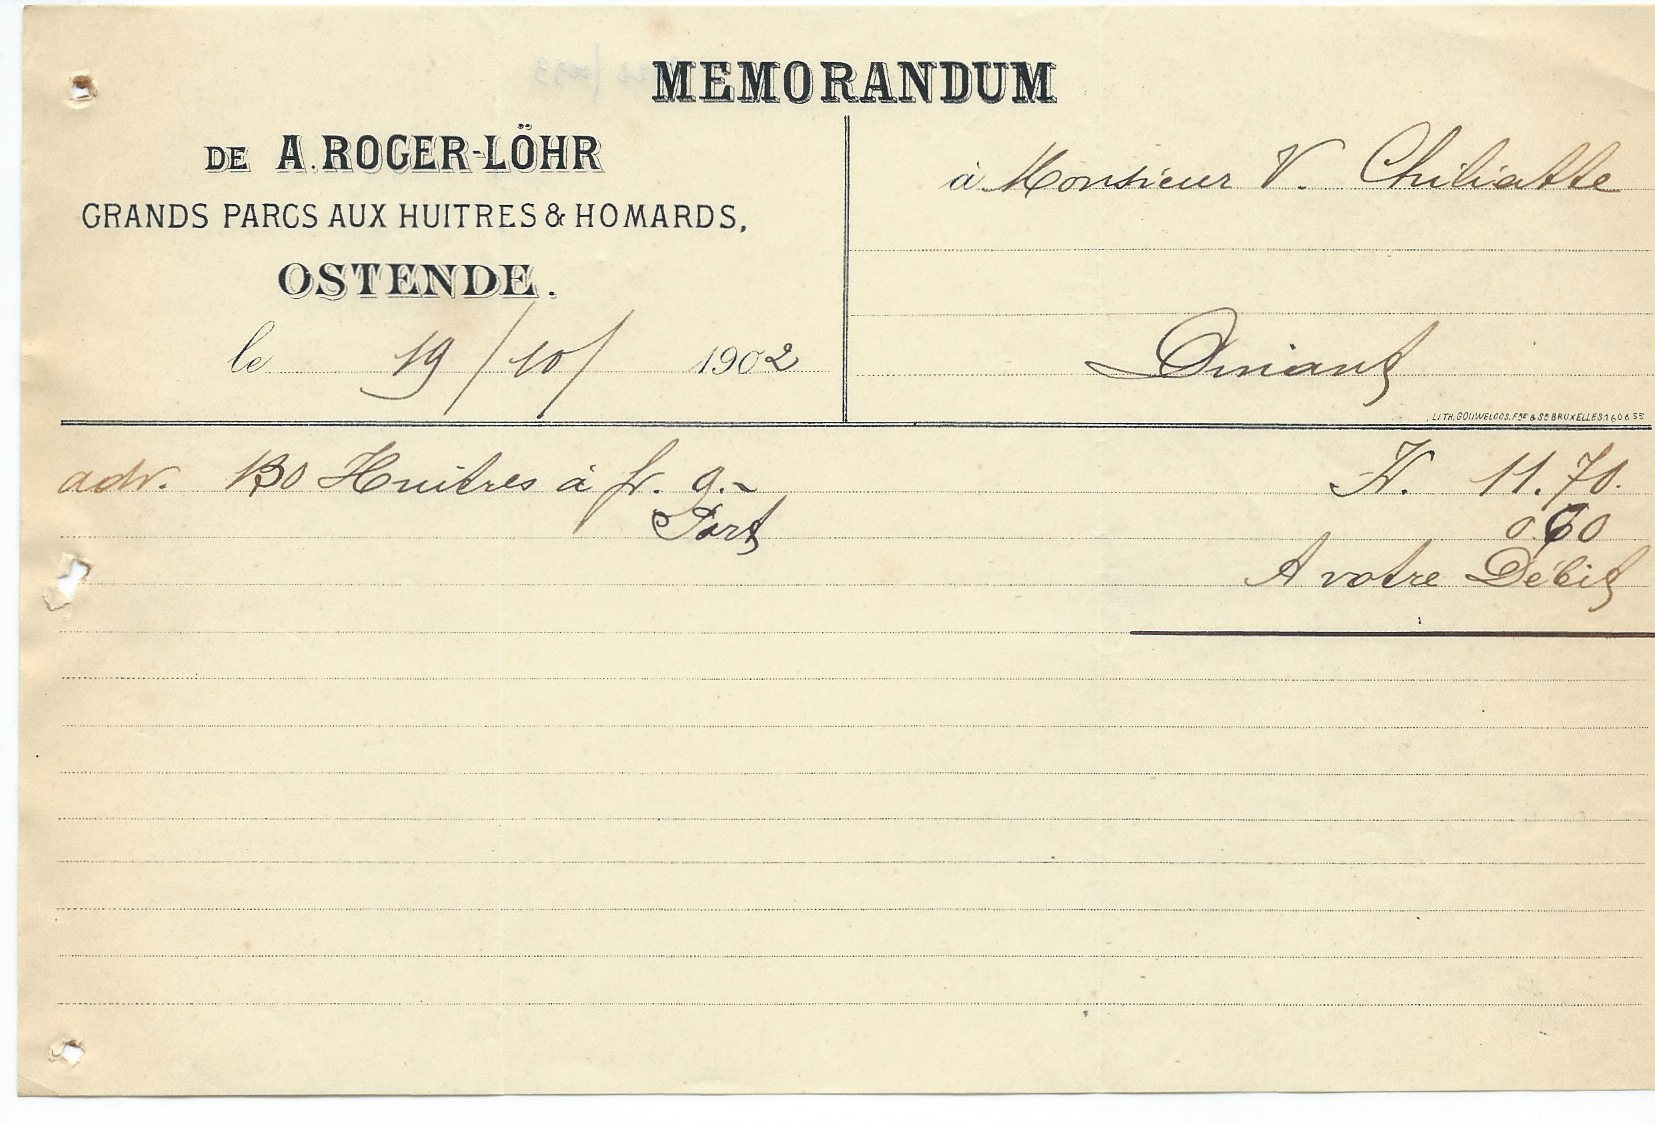 MEMORANDUM
DE A. ROGER-LÖHR
GRANDS PARCS AUX HUITRES & HOMARDS,
OSTENDE.
le 19/10/ 1902
à Monsieur V. Chiliatte
Dinant
LITH. GOUWELOOS, FRE & SR BRUXELLES
adr. 130 Huitres à fr. 9.- Fr. 11.70.
Port 0.60
A votre Débit